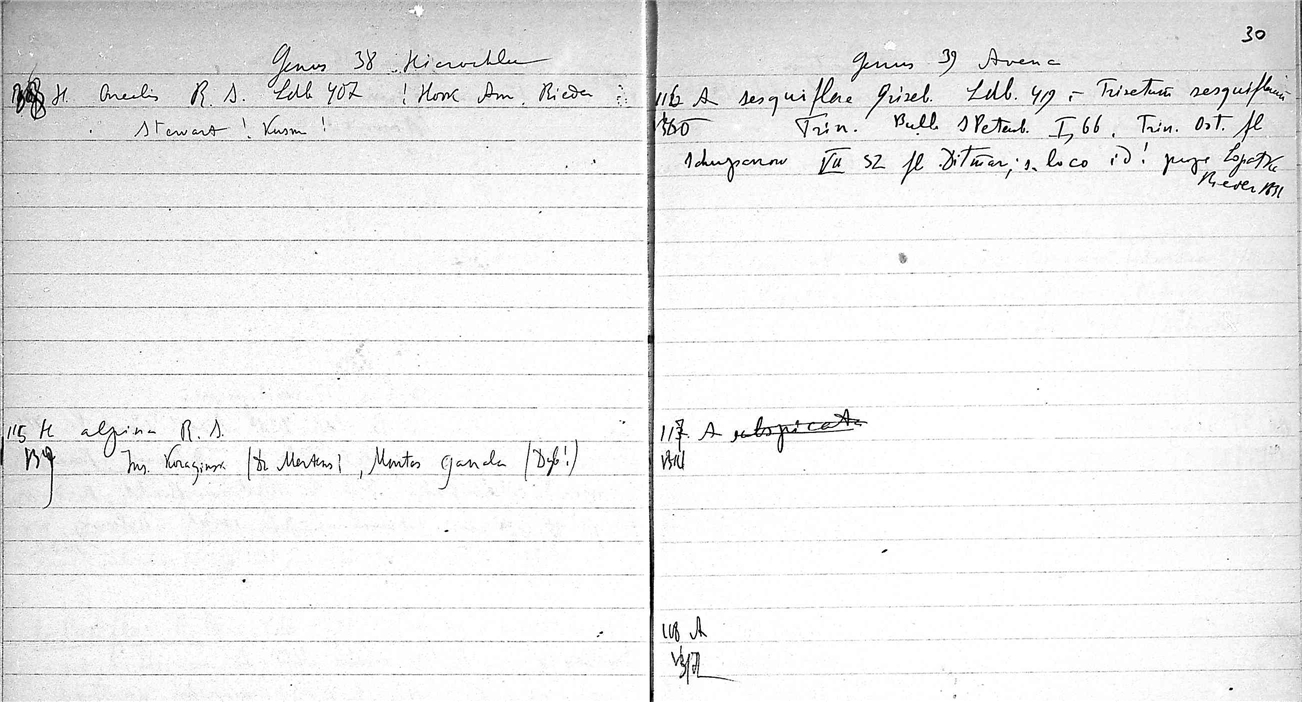 Genus 38 Hierochloe
H. borealis R. S. Ldb 407 ! Hook Am. Rieder
Stewart ! Kusm !
115 H alpina R. S.
Ins. Karaginsk (Dr Mertens), Montes Ganda (Dyb!)
30
Genus 39 Avena
116 A sesquiflora Griseb. Ldb. 419 - Trisetum sesquiflorum
Trin. Bull. SPetersb. I, 66. Trin. Ost. fl
VII 52 fl Ditmar; s. loco id! prope Lopatka
Rieder 1831
117 A subspicata
118 A